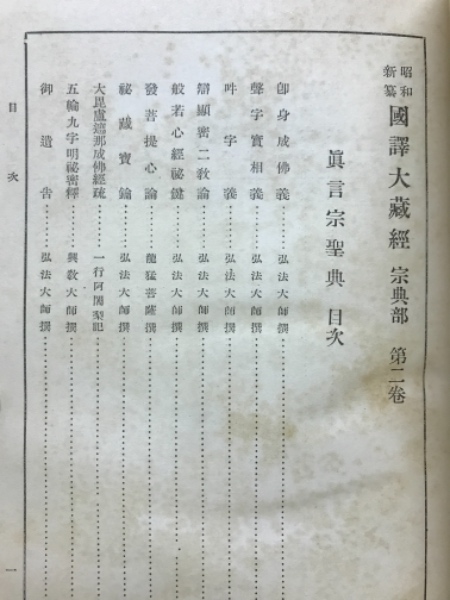 昭和新纂 國譯大藏經 宗典部 第二卷
眞言宗聖典 目次
卽身成佛義……弘法大師撰……
聲字實相義……弘法大師撰……
吽字義……弘法大師撰……
辯顯密二敎論……弘法大師撰……
般若心經祕鍵……弘法大師撰……
發菩提心論……龍猛菩薩撰……
祕藏寶鑰……弘法大師撰……
大毘盧遮那成佛經疏……一行阿闍梨記……
五輪九字明祕密釋……興敎大師撰……
御遺告……弘法大師撰……
目次
一